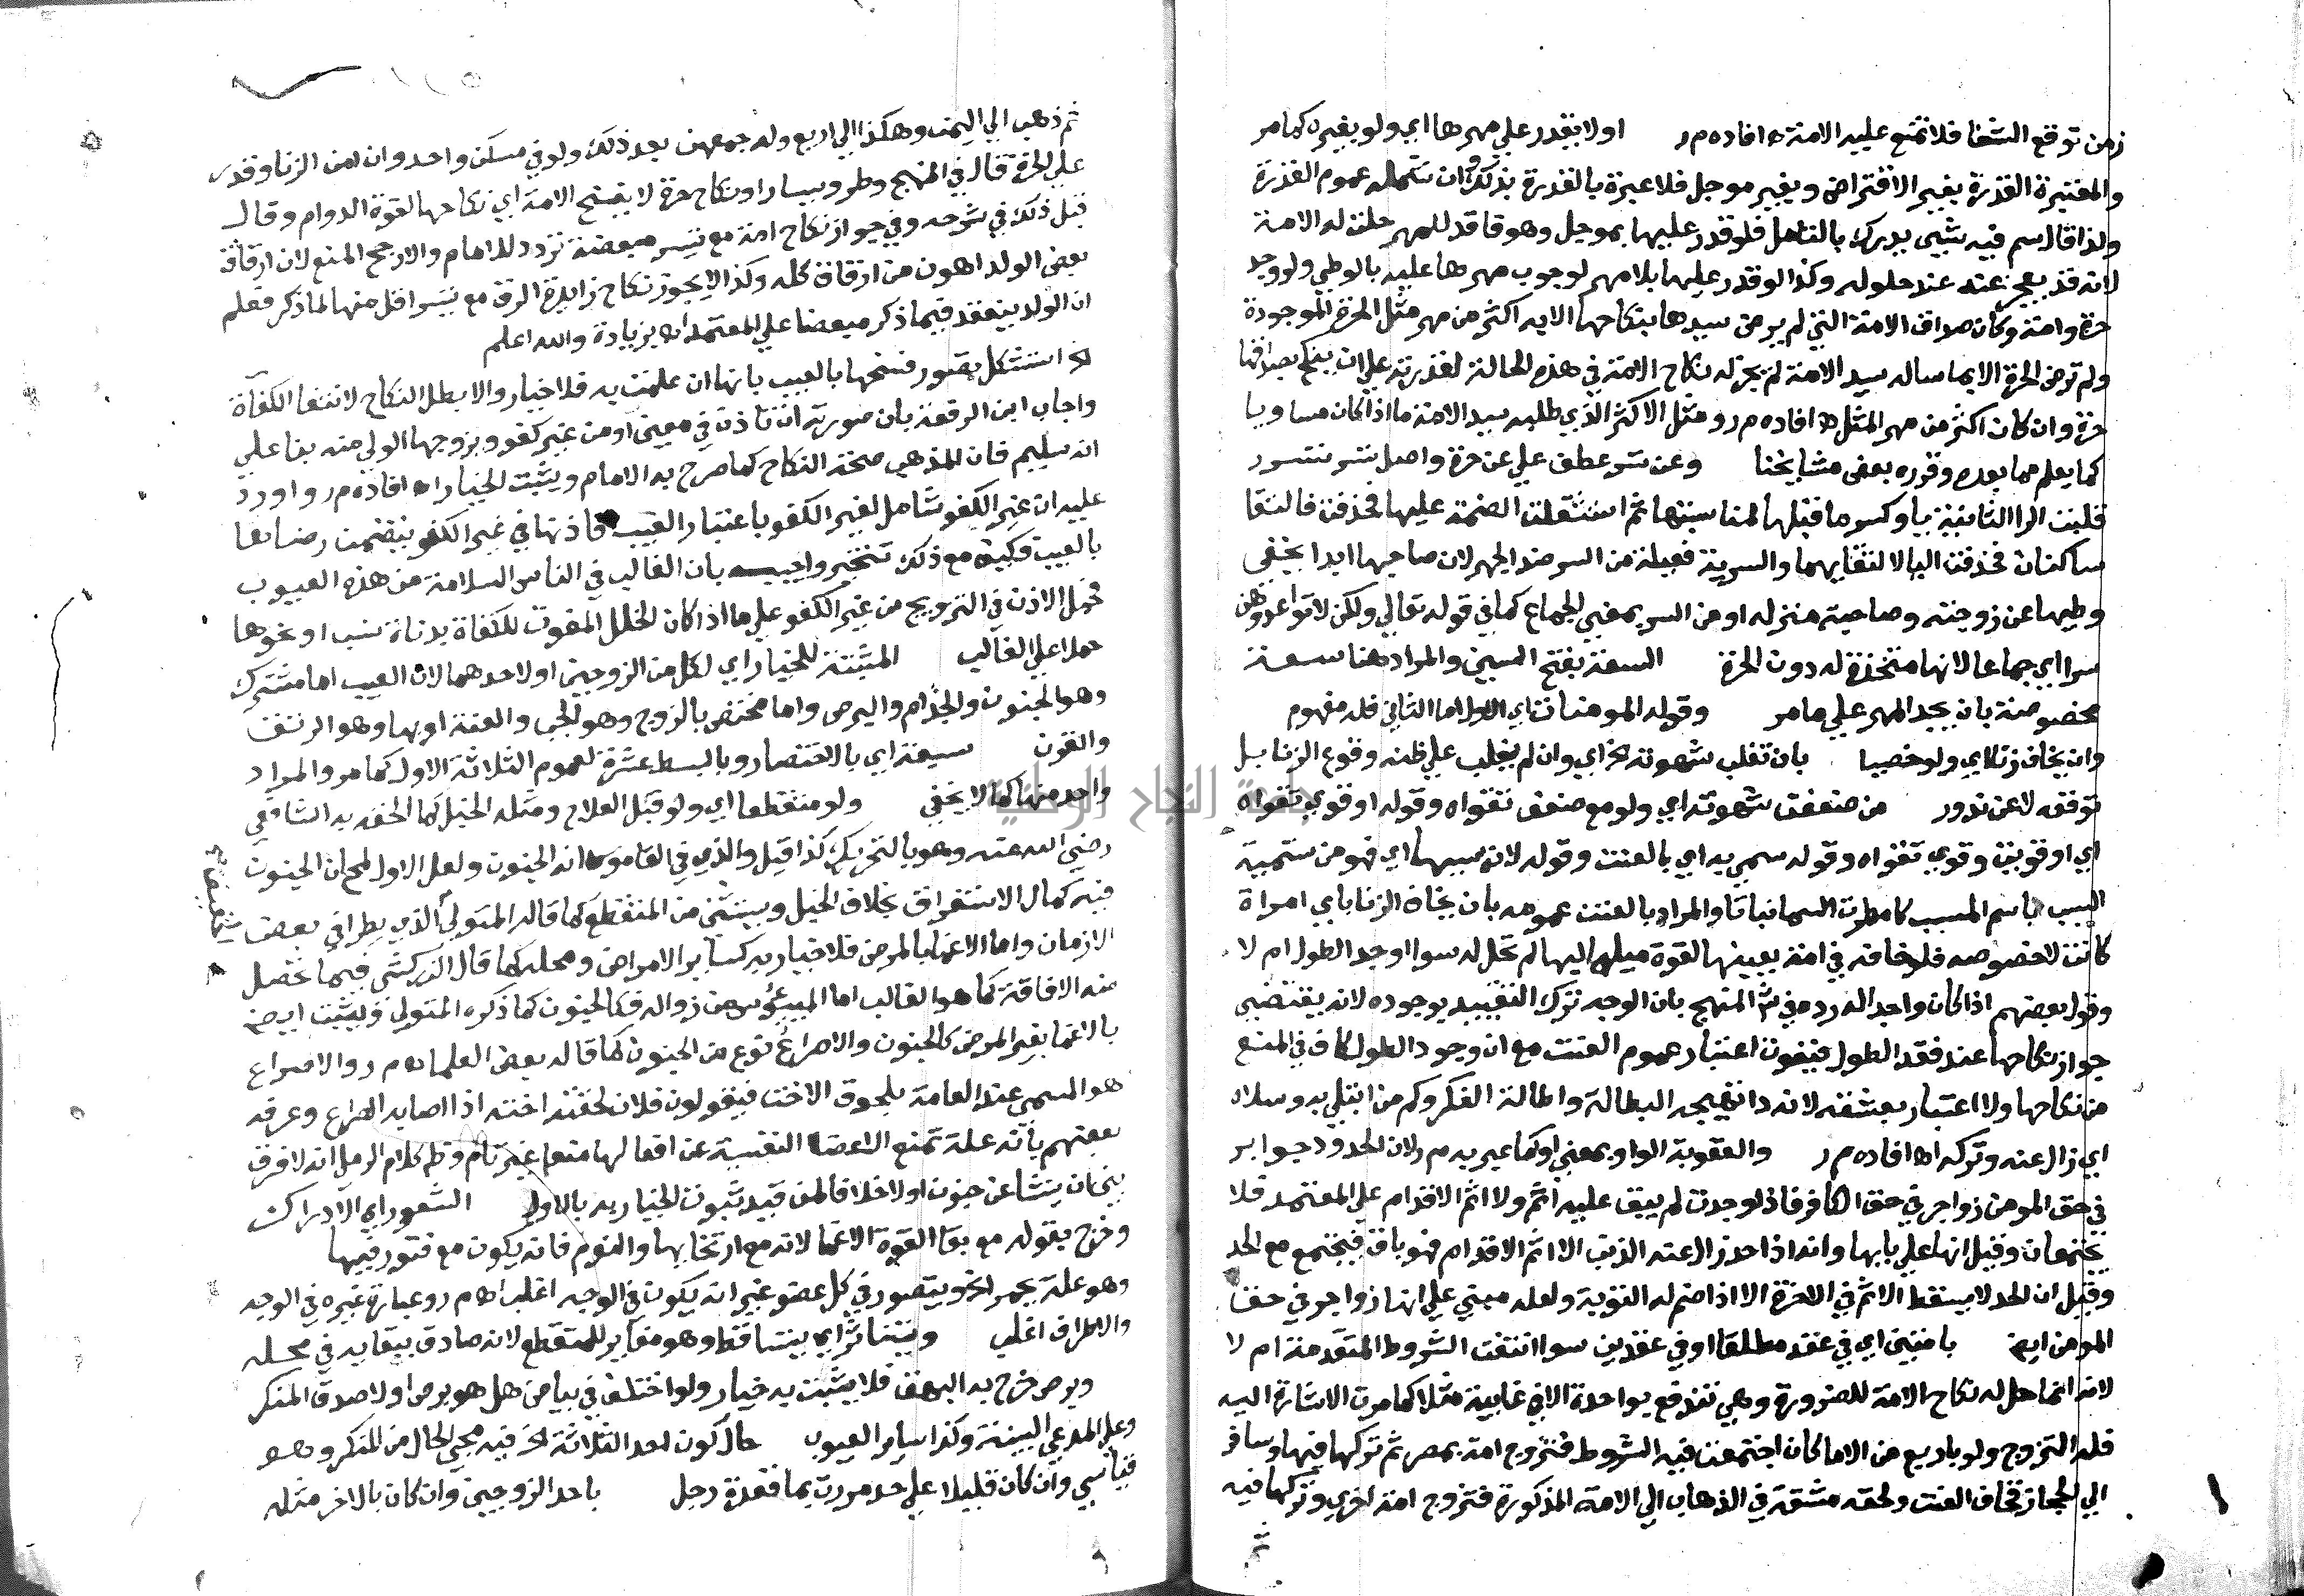 زمن توقع الشفا فلا تمتع عليه الامة اه افاده م ر اولا يقدر علي مهرها اي ولو بغيره كما مر
والمعتبرة القدرة بغير الاقتراض وبغير موجل فلا عبرة بالقدرة بذلك وان شمله عموم القدرة
ولذا قال سم فيه شيء يدرك بالتامل فلو قدر عليها بموجل وهو فاقد للمهر حلت له الامة
لانه قد يعجز عنه عند حلوله وكذا لو قدر عليها بلا مهر لوجوب مهرها عليه بالوطي ولو وجد
حرة وامة وكان صداق الامة التي لم يرض سيدها بنكاحها الا به اكثر من مهر مثل الحرة الموجودة
ولم ترض الحرة الا بما ساله سيد الامة لم يجز له نكاح الامة في هذه الحالة لقدرته علي ان ينكح بصداقها
حرة وان كان اكثر من مهر المثل اه افاده م ر ومثل الاكثر الذي طلبه سيد الامة ما اذا كان مساويا
كما يعلم مما بعده وقرره بعض مشايخنا وعن تسر عطف علي عن حرة واصل تسر تسرر
قلبت الرا الثانية يا وكسر ما قبلها لمناسبتها ثم استثقلت الضمة عليها فحذفت فالتقا
ساكنان فحذفت اليا لالتقايهما والسرية فعيلة من السر ضد الجهر لان صاحبها ابدا يخفي
وطيها عن زوجته وصاحبة منزله او من السر بمعني الجماع كما في قوله تعالي ولكن لا تواعدوهن
سرا اي جماعا لانها متخذة له دون الحرة السعة بفتح السين والمراد هنا سعة
مخصوصة بان يجد المهر علي ما مر وقوله المومنات اي الاول اما الثاني فله مفهوم
وان يخاف زنا اي ولو خصيا بان تغلب شهوته الخ اي وان لم يغلب علي ظنه وقوع الزنا بل
توقعه لا عن ندور من ضعفت شهوته اي ولو مع ضعف تقواه وقوله او قوي تقواه
اي او قويت وقوي تقواه وقوله سمي به اي بالعنت وقوله لانه سببها اي فهو من تسمية
السبب باسم المسبب كامطرت السما نباتا والمراد بالعنت عمومه بان يخاف الزنا باي امراة
كانت لا خصوصه فلو خافه في امة بعينها لقوة ميله اليها لم تحل له سوا اوجد الطول ام لا
وقول بعضهم اذا كان واجدا له رده في المنهج بان الوجه ترك التقييد بوجوده لانه يقتضي
جواز نكاحها عند فقد الطول فيفوت اعتبار عموم العنت مع ان وجود الطول كاف في المنع
من نكاحها ولا اعتبار بعشقه لانه دا تهيجه البطالة واطالة الفكر وكم من ابتلي به وسلاه
اي زال عنه وتركه اه افاده م ر والعقوبة الواو بمعني او كما عبر به م ر لان الحدود جوابر
في حق المومن زواجر في حق الكافر فاذا وجدت لم يبق عليه اثم ولا اثم الاقدام علي المعتمد فلا
يجتمعان وقيل انها علي بابها وانه اذا حد زال عنه الذنب الا اثم الاقدام فهو باق فيجتمع مع الحد
وقيل ان الحد لا يسقط الاثم في الاخرة الا اذا ضم له التوبة ولعله مبني علي انها زواجر في حق
المومن ايضا بامتين اي في عقد مطلقا او في عقدين سوا انتفت الشروط المتقدمة ام لا
لانه انما حل له نكاح الامة للضرورة وهي تندفع بواحدة الا في غايبة مثلا كما مرت الاشارة اليه
فله التزوج ولو باربع من الاما كان اجتمعت فيه الشروط فتزوج امة بمصر ثم تركها فيها وسافر
الي الحجاز فخاف العنت ولحقه مشقة في الذهاب الي الامة المذكورة فتزوج امة اخري وتركها فيه
ثم ذهب الي اليمن وهكذا الي اربع وله جمعهن بعد ذلك ولو في مسكن واحد وان امن الزنا وقدر
علي الحرة قال في المنهج وطرو يسار او نكاح حرة لا يفسخ الامة اي نكاحها لقوة الدوام وقال
قبل ذلك في شرحه وفي جواز نكاح امة مع تيسر مبعضة تردد للامام والارجح المنع لان ارقاق
بعض الولد اهون من ارقاق كله وكذا لا يجوز نكاح زايدة الرق مع تيسر اقل منها لما ذكر فعلم
ان الولد ينعقد فيما ذكر مبعضا علي المعتمد اه بزيادة والله اعلم
استشكل تصور فسخها بالعيب بانها ان علمت به فلا خيار والا بطل النكاح لانتفا الكفاة
واجاب ابن الرفعة بان صورته ان تاذن في معين او من غير كفو ويزوجها الولي منه بنا علي
انه سليم فان المذهب صحة النكاح كما صرح به الامام ويثبت الخيار اه افاده م ر واورد
عليه ان غير الكفو شامل لغير الكفو باعتبار العيب فاذنها في غير الكفو يتضمن رضاها
بالعيب فكيف مع ذلك تتخير واجيب بان الغالب في الناس السلامة من هذه العيوب
فحمل الاذن في التزويج من غير الكفو علي ما اذا كان الخلل المفوت للكفاة بدناة نسب او نحوها
حملا علي الغالب المثبتة للخيار اي لكل من الزوجين او لاحدهما لان العيب اما مشترك
وهو الجنون والجذام والبرص واما مختص بالزوج وهو الجب والعنة او بها وهو الرتق
والقرن سبعة اي بالاختصار وبالبسط عشرة لعموم الثلاثة الاول كما مر والمراد
واحد منها كما لا يخفي ولو متقطعا اي ولو قبل العلاج ومثله الخبل كما الحقه به الشافعي
رضي الله عنه وهو بالتحريك كذا قيل والذي في القاموس انه الجنون ولعل الاول لمح ان الجنون
فيه كمال الاستغراق بخلاف الخبل ويستثني من المتقطع كما قاله المتولي الذي يطرا في بعض
الازمان واما الاغما بالمرض فلا خيار به كساير الامراض ومحله كما قال الزركشي فيما تحصل
منه الافاقة كما هو الغالب اما الميئوس من زواله فكالجنون كما ذكره المتولي ويثبت ايضا
بالاغما بغير المرض كالجنون والاصراع نوع من الجنون كما قاله بعض العلما اه م ر والاصراع
هو المسمي عند العامة بلحوق الاخت فيقولون فلان لحقته اخته اذا اصابه الصراع وعرفه
بعضهم بانه علة تمنع الاعضا النفسية عن افعالها منعا غير تام وظ كلام الرملي انه لا فرق
بين ان ينشا عن جنون او لا خلافا لمن قيد ثبوت الخيار به بالاول الشعور اي الادراك
وخرج بقوله مع بقا القوة الاغما لانه مع ارتخايها والنوم فانه يكون مع فتور فيها
وهو علة يحمر الخ ويتصور في كل عضو غير انه يكون في الوجه اغلب اه م ر وعبارة غيره في الوجه
والاطراف اغلب ويتناثر اي يتساقط وهو مغاير للمتقطع لانه صادق ببقايه في محله
وبرص خرج به البهق فلا يثبت به خيار ولو اختلف في بياض هل هو برص اولا صدق المنكر
وعلي المدعي البينة وكذا ساير العيوب حال كون احد الثلاثة الخ فيه مجيء الحال من المنكر وهو
قياسي وان كان قليلا علي حد مررت بما قعدة رجل باحد الزوجين وان كان بالاخر مثله
جامعة النجاح الوطنية